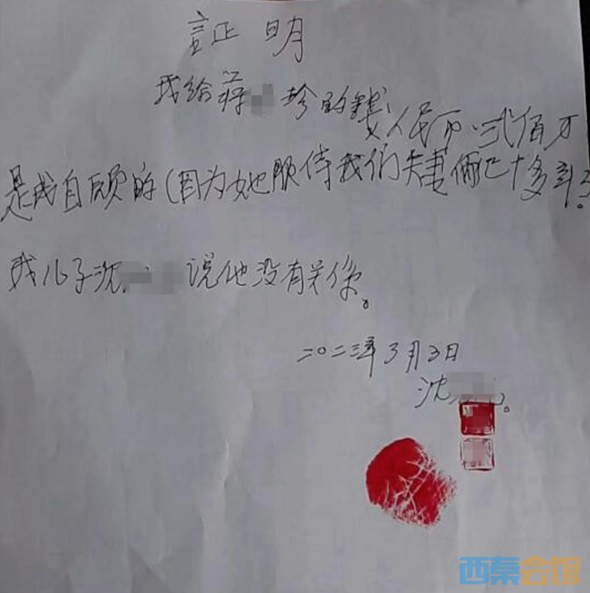 証明
我给蒋珍的钱人民币.弍佰万
是我自愿的(因为她服侍我们夫妻俩已十多年了。
我儿子沈说他没有关系。
二〇二三年3月3日
沈。
西秦会馆